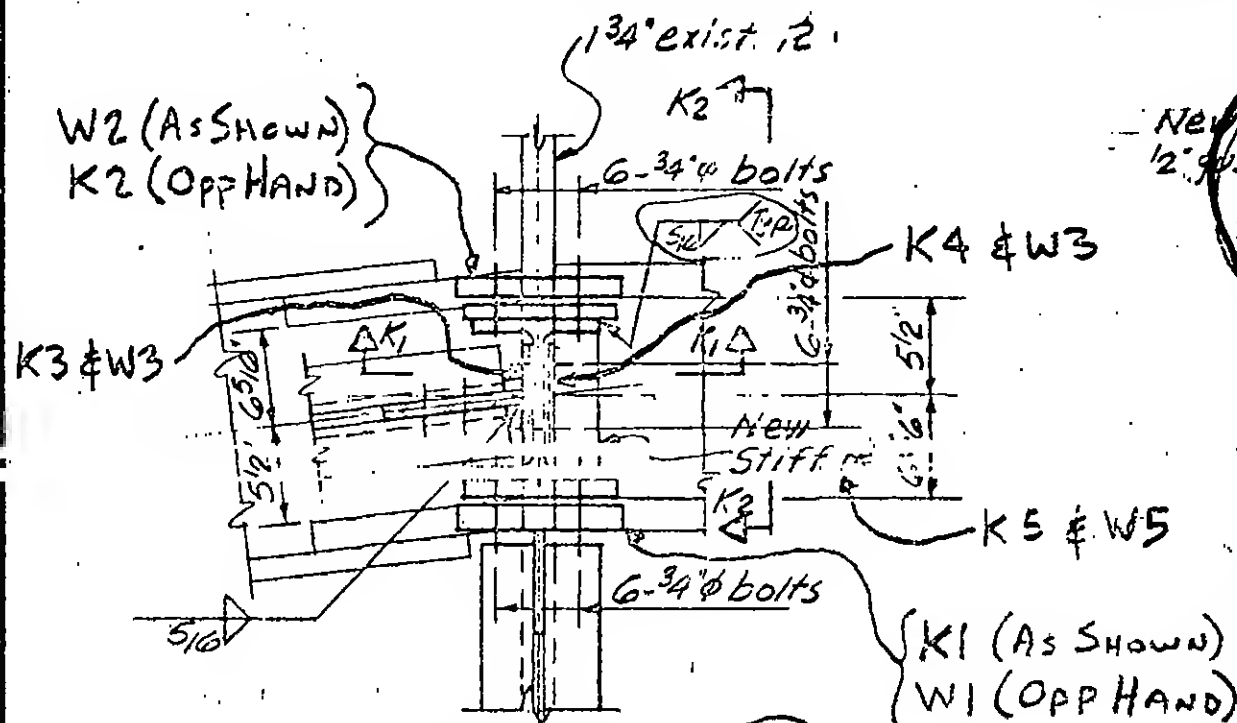 1 3/4" exist. ℄
W2 (As Shown)
K2 (Opp Hand)
K2
6-3/4"φ bolts
5/16 Typ
6-3/4"φ bolts
K4 & W3
K3 & W3
K1
K1
5 1/2"
6 5/16"
5 1/2"
New
Stiff
K2
K5 & W5
6-3/4"φ bolts
5/16
K1 (As Shown)
W1 (Opp Hand)